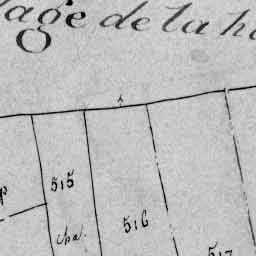 lage de la h
515
516
517
cha.